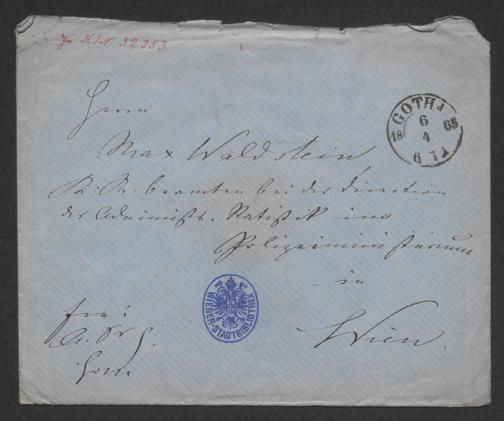 Zu H.I.N. 32353
GOTHA
6
18 4 65
6-7 A
Herrn
Max Waldstein,
K. K. beamten bei der Direction
der Administ. Statistik im
Polizeiministerium
in
Wien.
frei
WIENER-STADTBIBLIOTHEK